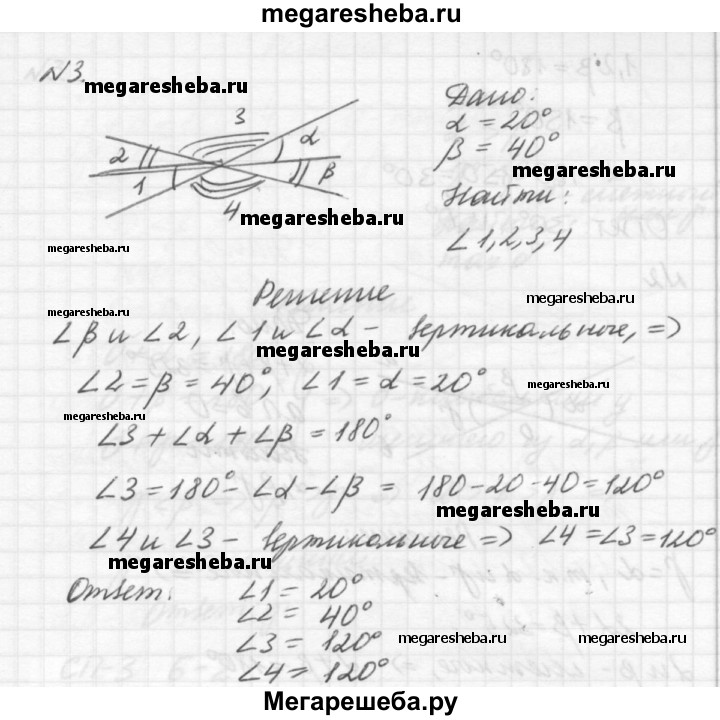 megaresheba.ru
N3.
megaresheba.ru
3
2
α
1
β
4
megaresheba.ru
megaresheba.ru
Дано:
α = 20°
β = 40°
megaresheba.ru
Найти:
∠1,2,3,4
Решение
megaresheba.ru
∠β и ∠2, ∠1 и ∠α - вертикальные, =>
megaresheba.ru
∠2 = β = 40°, ∠1 = α = 20°
megaresheba.ru
megaresheba.ru
∠3 + ∠α + ∠β = 180°
∠3 = 180° - ∠α - ∠β = 180 - 20 - 40 = 120°
megaresheba.ru
∠4 и ∠3 - вертикольные => ∠4 = ∠3 = 120°
megaresheba.ru
Ответ: ∠1 = 20°
∠2 = 40°
∠3 = 120°
∠4 = 120°
megaresheba.ru
megaresheba.ru
Мегарешеба.ру